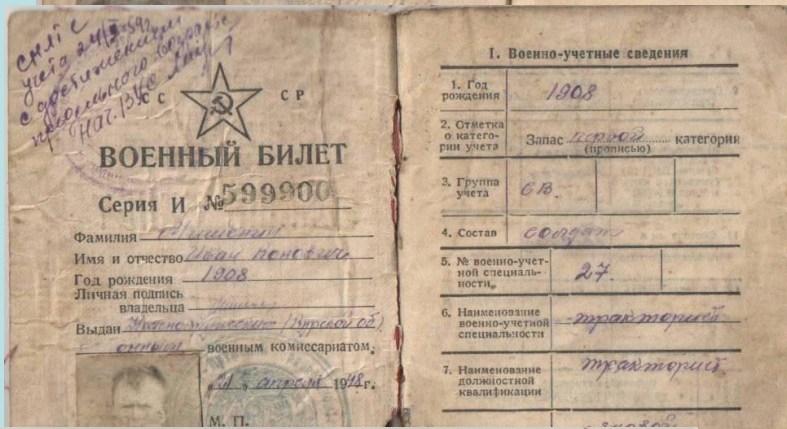 СНЯТ С
учета
с достижением
предельного возраста
СС СР
ВОЕННЫЙ БИЛЕТ
Серия И № 599900
Фамилия
Имя и отчество Иван
Год рождения 1908
Личная подпись
владельца
Выдан (Курской об)
военным комиссариатом.
21 апреля 1948 г.
М. П.
I. Военно-учетные сведения
1. Год
рождения 1908
2. Отметка
о катего-
рии учета
Запас первой категории
(прописью)
3. Группа
учета
СВ.
4. Состав солдат
5. № военно-учет-
ной специаль-
ности.
27.
6. Наименование
военно-учетной
специальности
тракторист
7. Наименование
должностной
квалификации
тракторист